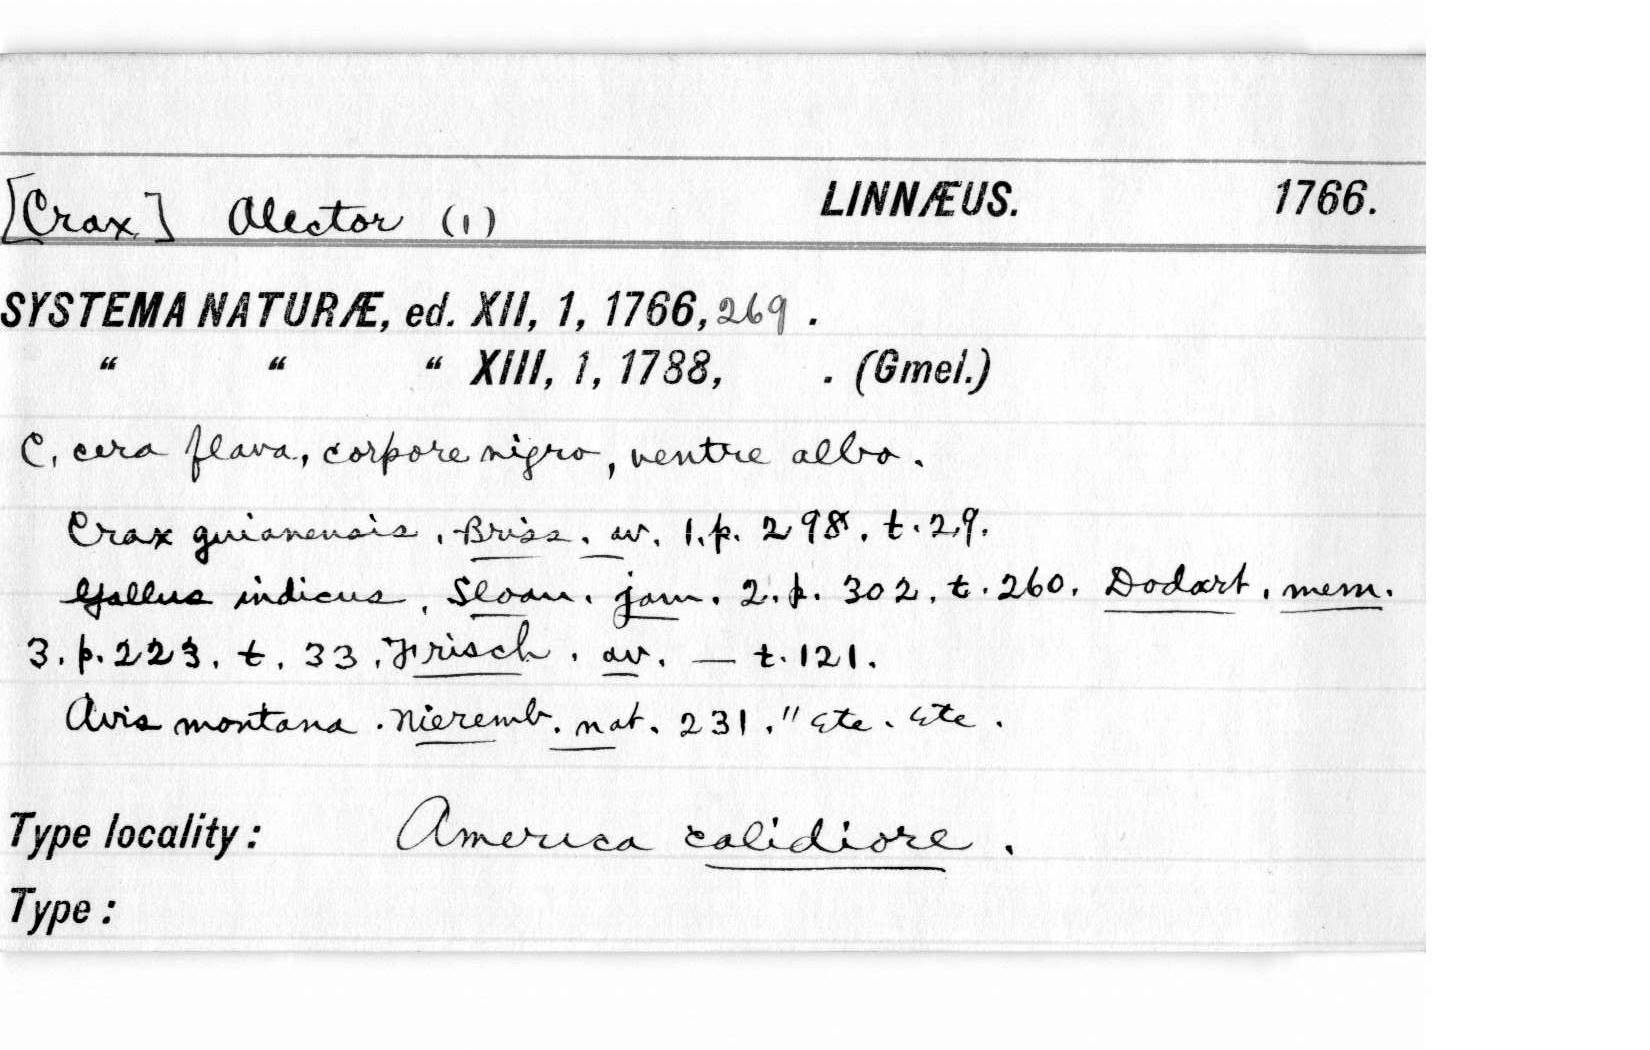 [Crax] Alector (1) LINNÆUS. 1766.
SYSTEMA NATURÆ, ed. XII, 1, 1766, 269 .
“ “ “ XIII, 1, 1788, . (Gmel.)
C. cera flava, corpore nigro, ventre albo.
Crax guianensis. Briss. av. 1. p. 298. t. 29.
Gallus indicus. Sloan. jam. 2. p. 302. t. 260. Dodart. mem.
3. p. 223. t. 33. Frisch. av. — t. 121.
Avis montana. Nieremb. nat. 231." Etc. Etc.
Type locality: America calidiore.
Type: